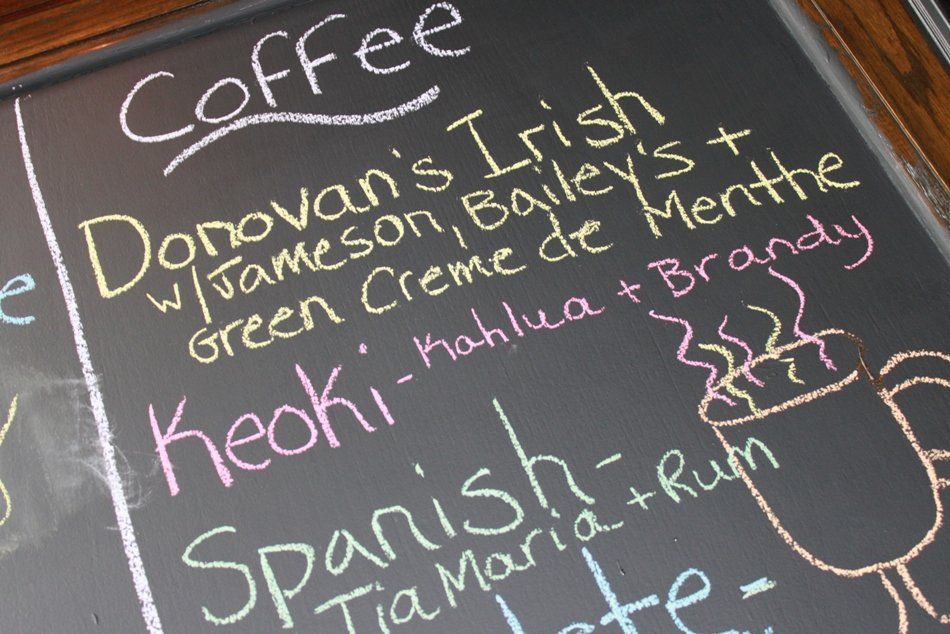 Coffee
Donovan's Irish
w/Jameson, Bailey's +
Green Creme de Menthe
Keoki - Kahlua + Brandy
Spanish -
Tia Maria + Rum